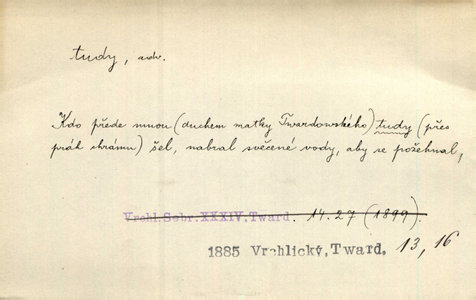 tudy, adv.
Kdo přede mnou (duchem matky Twardowského) tudy (přes
práh chrámu) šel, nabral svěcené vody, aby se požehnal,
Vrchl.Sebr.XXXIV,Tward. 14.27 (1899)
1885 Vrchlický,Tward. 13,16